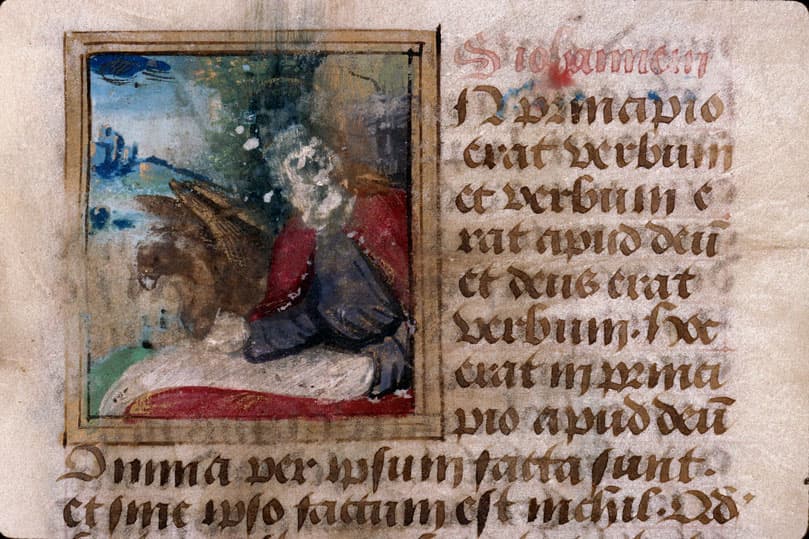 S iohannem
IN principio
erat verbum
et verbum e
rat apud deū
et deus erat
verbum. hoc
erat in princi
pio apud deū
Omnia per ipsum facta sunt.
et sine ipso factum est nichil. Qd̄